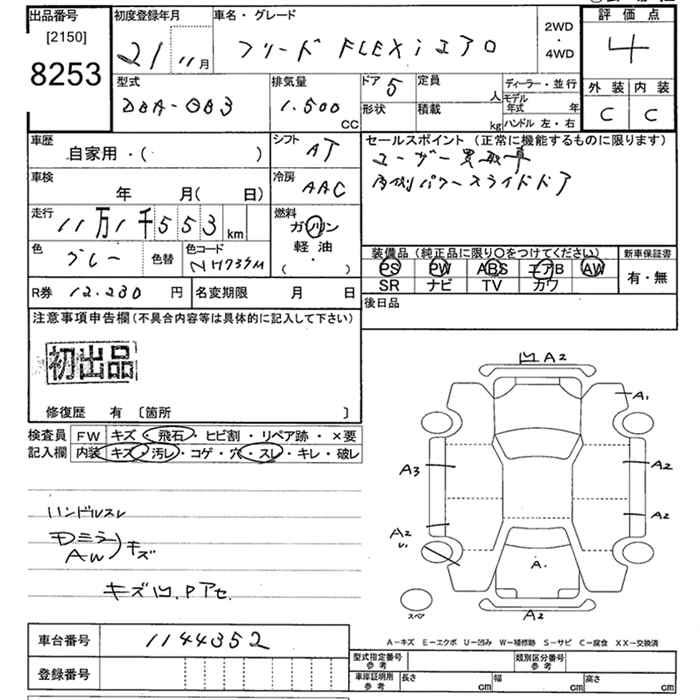 出品番号 初度登録年月 車名・グレード 2WD・4WD 評価点
[2150]
8253
21 11月 フリード FLEXi エアロ 4
型式 排気量 ドア 5 定員 人 ディーラー・並行 外装 内装
DBA-GB3 1.500 CC 形状 積載 kg モデル年式 年 C C
ハンドル 左・右
車歴 シフト セールスポイント (正常に機能するものに限ります)
自家用・( ) AT ユーザー買取車
車検 冷房 両側パワースライドドア
年 月( 日) AAC
走行 燃料
11万1千553km ガソリン
軽油
( ・ )
色 グレー 色替 色コード NH737M
装備品(純正品に限り○をつけてください) 新車保証書
PS PW ABS エアB AW 有・無
SR ナビ TV カワ
R券 12.230 円 名変期限 月 日 後日品
注意事項申告欄(不具合内容等は具体的に記入して下さい)
初出品
修復歴 有 〔箇所 〕
検査員 FW キズ・飛石・ヒビ割・リペア跡・×要
記入欄 内装 キズ・汚レ・コゲ・穴・スレ・キレ・破レ
ハンドルスレ
Dミラー
AW キズ
キズ凹.Pアセ.
凹 A2
A1
A3
A2
A2
A2
U.
A.
スペア
A2
A-キズ E-エクボ U-凹み W-補修跡 S-サビ C-腐食 XX-交換済
車台番号 1144352
登録番号
型式指定番号 参考 類別区分番号 参考
車庫証明用 参考 長さ cm 幅 cm 高さ cm